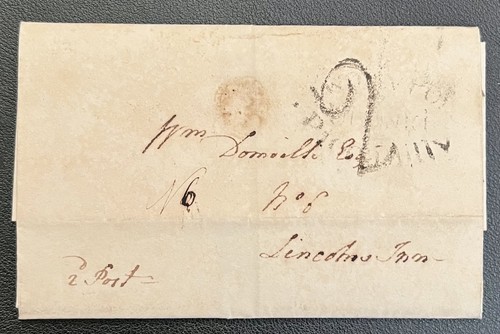 2
Wm Domville Esq
No 6
No 6
Lincolns Inn
2d Post